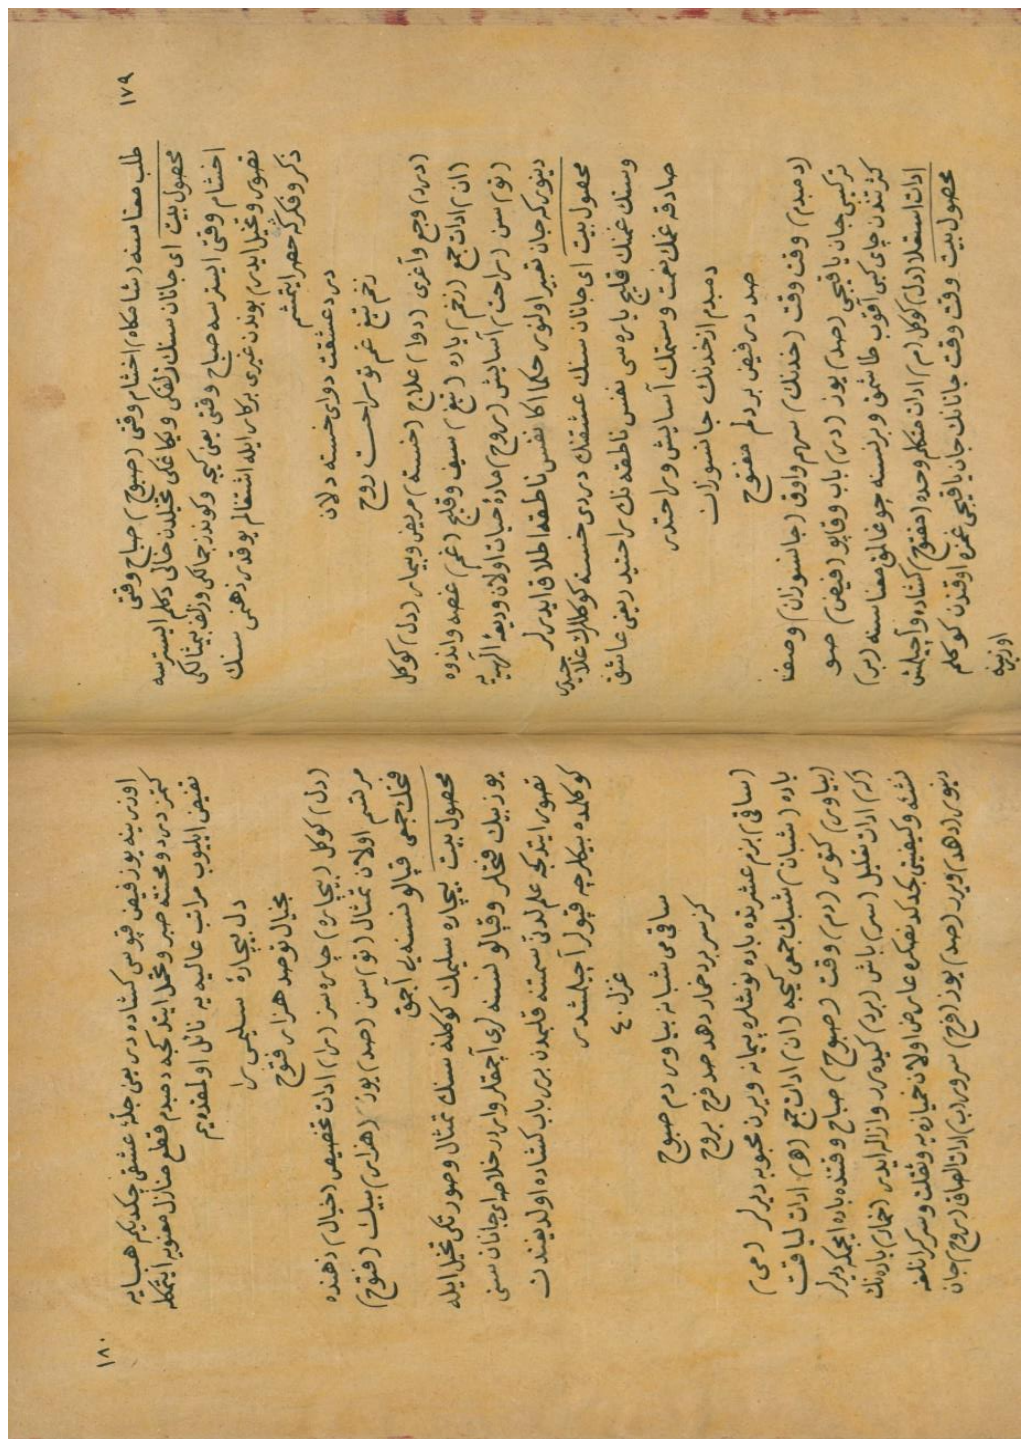 ١٧٩
طلب معناسنه (شامكاه) اخشام وقتى (صبوح) صباح وقتى
محصول بيت اى جانان سنك زلفكى و يكاغكى تخيلدن خالى دكلم ايسترسه
اخشام وقتى ايسترسه صباح وقتى يعنى كيجه و كوندز جمالكى و زلف بيمثالكى
تصور و تخيل ايدرم بوندن غيرى بر كار ايله اشتغالم يوقدر ذهنمى سنك
ذكر و فكركه حصر ايتمشم
درد عشقت دواى خسته دلان
زخم تيغ غم تو راحت روح
(درد) وجع و آغرى (دوا) علاج (خسته) مريض و بيمار (دل) كوكل
(ان) ادات جمع (زخم) ياره (تيغ) سيف و قليج (غم) غصه و اندوه
(تو) سن (راحت) آسايش (روح) مادۀ حيات اولان وديعۀ الهيه يه
دينور كه جان تعبير اولنور حكما اكا نفس ناطقه اطلاق ايدرلر
محصول بيت اى جانان سنك عشقنك دردى خسته كوكللرك علاجيدر
و سنك غمنك قليج ياره سى نفس ناطقه نك راحتيدر يعنى عاشق
صادقه غمك نعمت و ستمك آسايش و راحتدر
دمبدم از خدنك جانسوزان
صد در فيض بر دلم مفتوح
(دمبدم) وقت وقت (خدنك) سهم و اوق (جانسوزان) وصفى
تركيبى جان ياقيجى (صد) يوز (در) باب و قاپو (فيض) صو
كثرتندن چاى كبى آقوب طاشمق و بر نسنه چوغالمق معناسنه (بر)
ادات استعلا (دل) كوكل (م) ادات متكلم وحده (مفتوح) كشاده و آچيلمش
محصول بيت وقت وقت جانانك جان ياقيجى غمزه اوقندن كوكلم
اوزرينه
١٨٠
اوزرينه يوز فيض قپوسى كشاده در يعنى جلۀ عشقى چكديكم هسايه
كتمز درد و محنته صبر و تحمل ايتدكجه دمبدم قطع منازل معنويه ايتمكله
تفيض ايليوب مراتب عاليه يه نائل اولمقده يم
دل بيچارۀ سليمى را
بخيال تو صد هزار فتوح
(دل) كوكل (بيچاره) چاره سز (را) ادات تخصيص (خيال) ذهنده
مرتسم اولان تمثال (تو) سن (صد) يوز (هزار) بيك (فتوح)
فتحك جمعى قپالو نسنه يى آچمق
محصول بيت بيچاره سليمك كوكلنه سنك تمثال و صورتكى تخيل ايله
يوز بيك فتحلر و قپالو نسنه لرى آچمقلر واردر خلاصه اى جانان سنى
تصور ايتدكجه علم لدنى سمتنه قلبمدن برر باب كشاده اولديغندن
كوكلمده بيكلرجه قپولر آچيلمشدر
غزل ٤٠
ساقى مى شبانه بياور دم صبوح
كز سر برد خمار دهد صد فرح بروح
(ساقى) بزم عشرتده باده نوشلره پيمانه ويرن محبوبه ديرلر (مى)
باده (شبان) شبك جمعى كيجه (ان) ادات جمع (ه) ادات لياقت
(بياور) كتور (دم) وقت (صبوح) صباح وقتنده باده ايچمكه ديرلر
(كز) ادات تعليل (سر) باش (برد) كيدرر و ازاله ايدر (خمار) باده نك
نشئه و كيفيتى كجدكدنصكره عارض اولان خميازه يه و ثقلت و سركرانلغه
دينور (دهد) ويرر (صد) يوز (فرح) سرور (ب) ادات الصاق (روح) جان